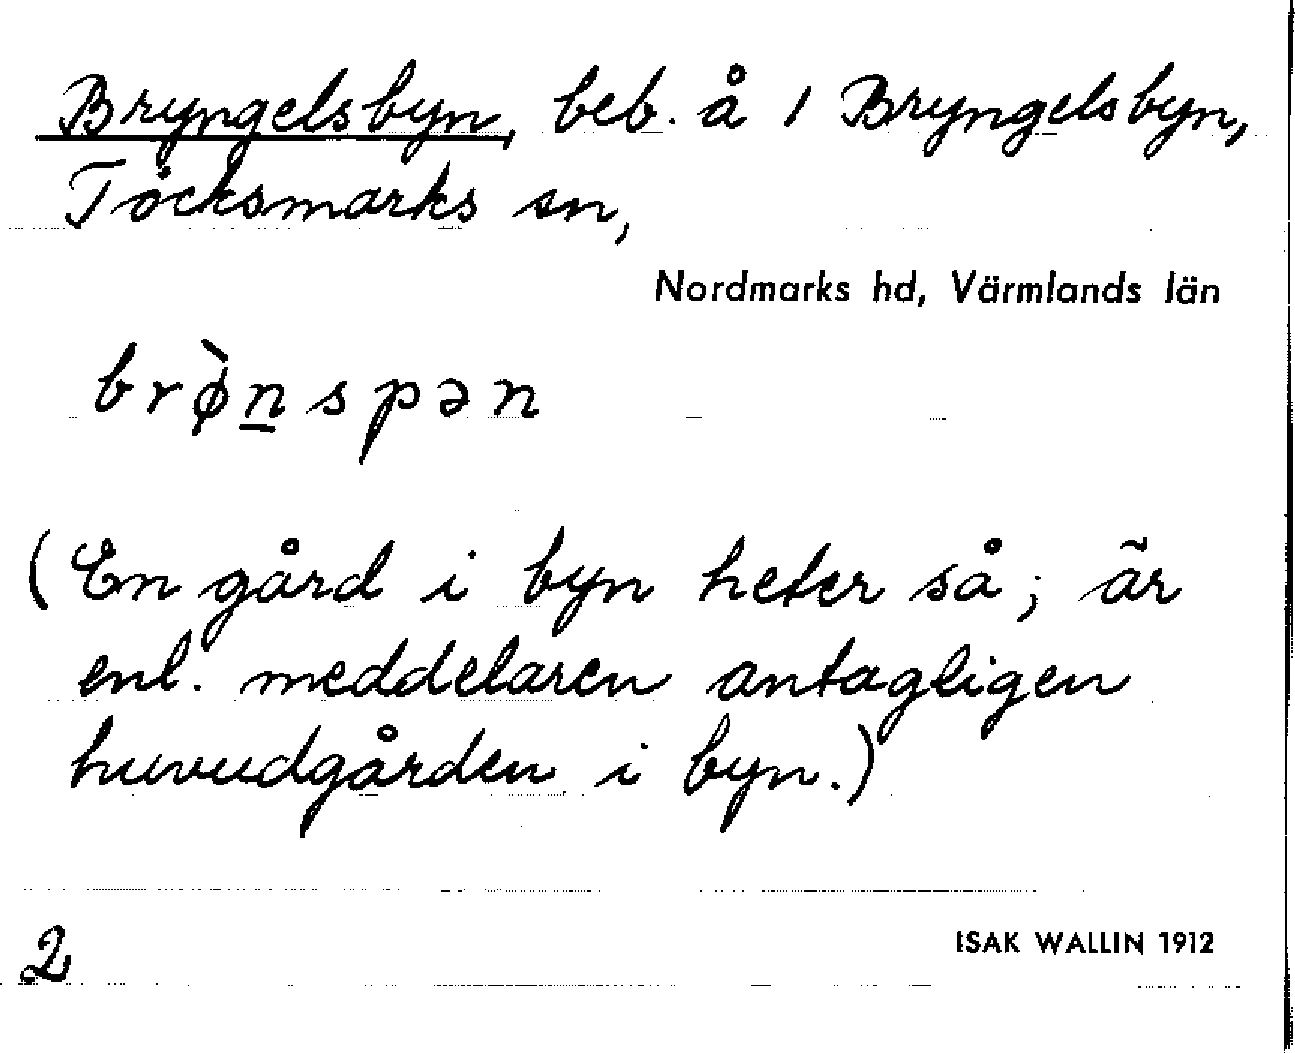 Bryngelsbyn, beb. å 1 Bryngelsbyn,
Töcksmarks sn,
Nordmarks hd, Värmlands län
brø̀n̲spən
(En gård i byn heter så; är
enl. meddelaren antagligen
huvudgården i byn.)
2
ISAK WALLIN 1912